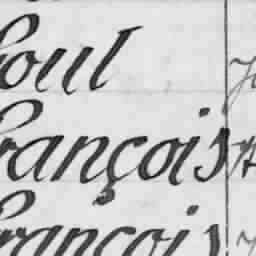 oul
rançois
rançois